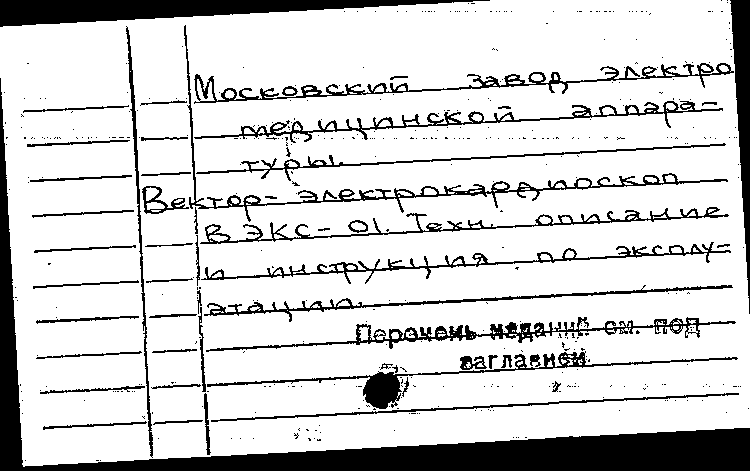 Московский завод электро
медицинской аппара-
туры.
Вектор-электрокардиоскоп
ВЭКС-01. Техн. описание
и инструкция по эксплу-
атации.
Перечень изданий см. под
заглавией